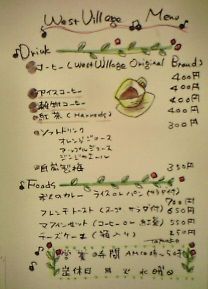 West Village Menu
Drink
コーヒー (West Village Original Brend)
400円
400円
アイスコーヒー 400円
穀物コーヒー 400円
紅茶 (Harrods) 400円
ソフトドリンク 300円
オレンジジュース
アップルジュース
ジンジャエール
自家製梅 350円
Foods
カレー ライスorパン
700円
フレンチトースト 650円
マフィンセット (コーヒーor紅茶) 550円
チーズケーキ 250円
営業時間 AM10時~5時
定休日 月 火 水曜日